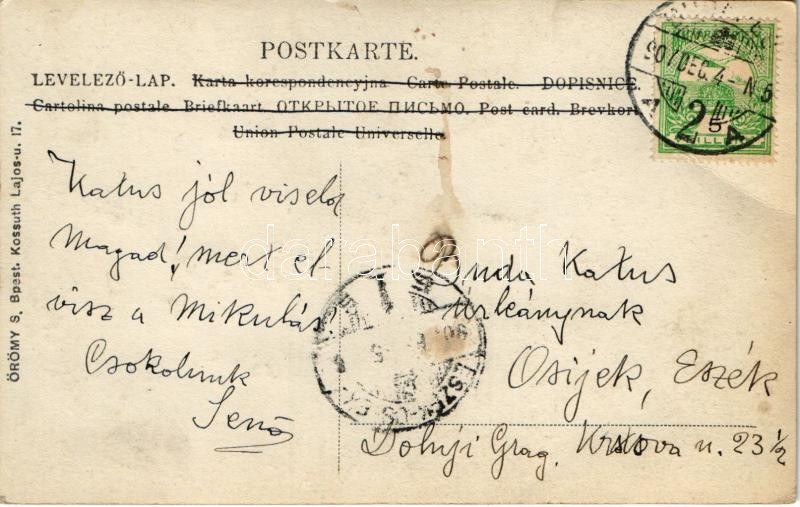 POSTKARTE.
LEVELEZŐ-LAP. Karta korespondencyjna Carte Postale. DOPISNICE
Cartolina postale. Briefkaart ОТКРЫТОЕ ПИСЬМО. Post card. Brevkort
Union Postale Universelle
907 DEC. 4. N 5
A A
2
ÖRÖMY S, Bpest. Kossuth Lajos-u. 17.
Katus jól viseld
Magad! mert el
visz a Mikulás
Csokolunk
Jenő
Buda Katus
Urleánynak
Osijek, Eszék
Dolnji Grag. u. 23 1/2
darabanth